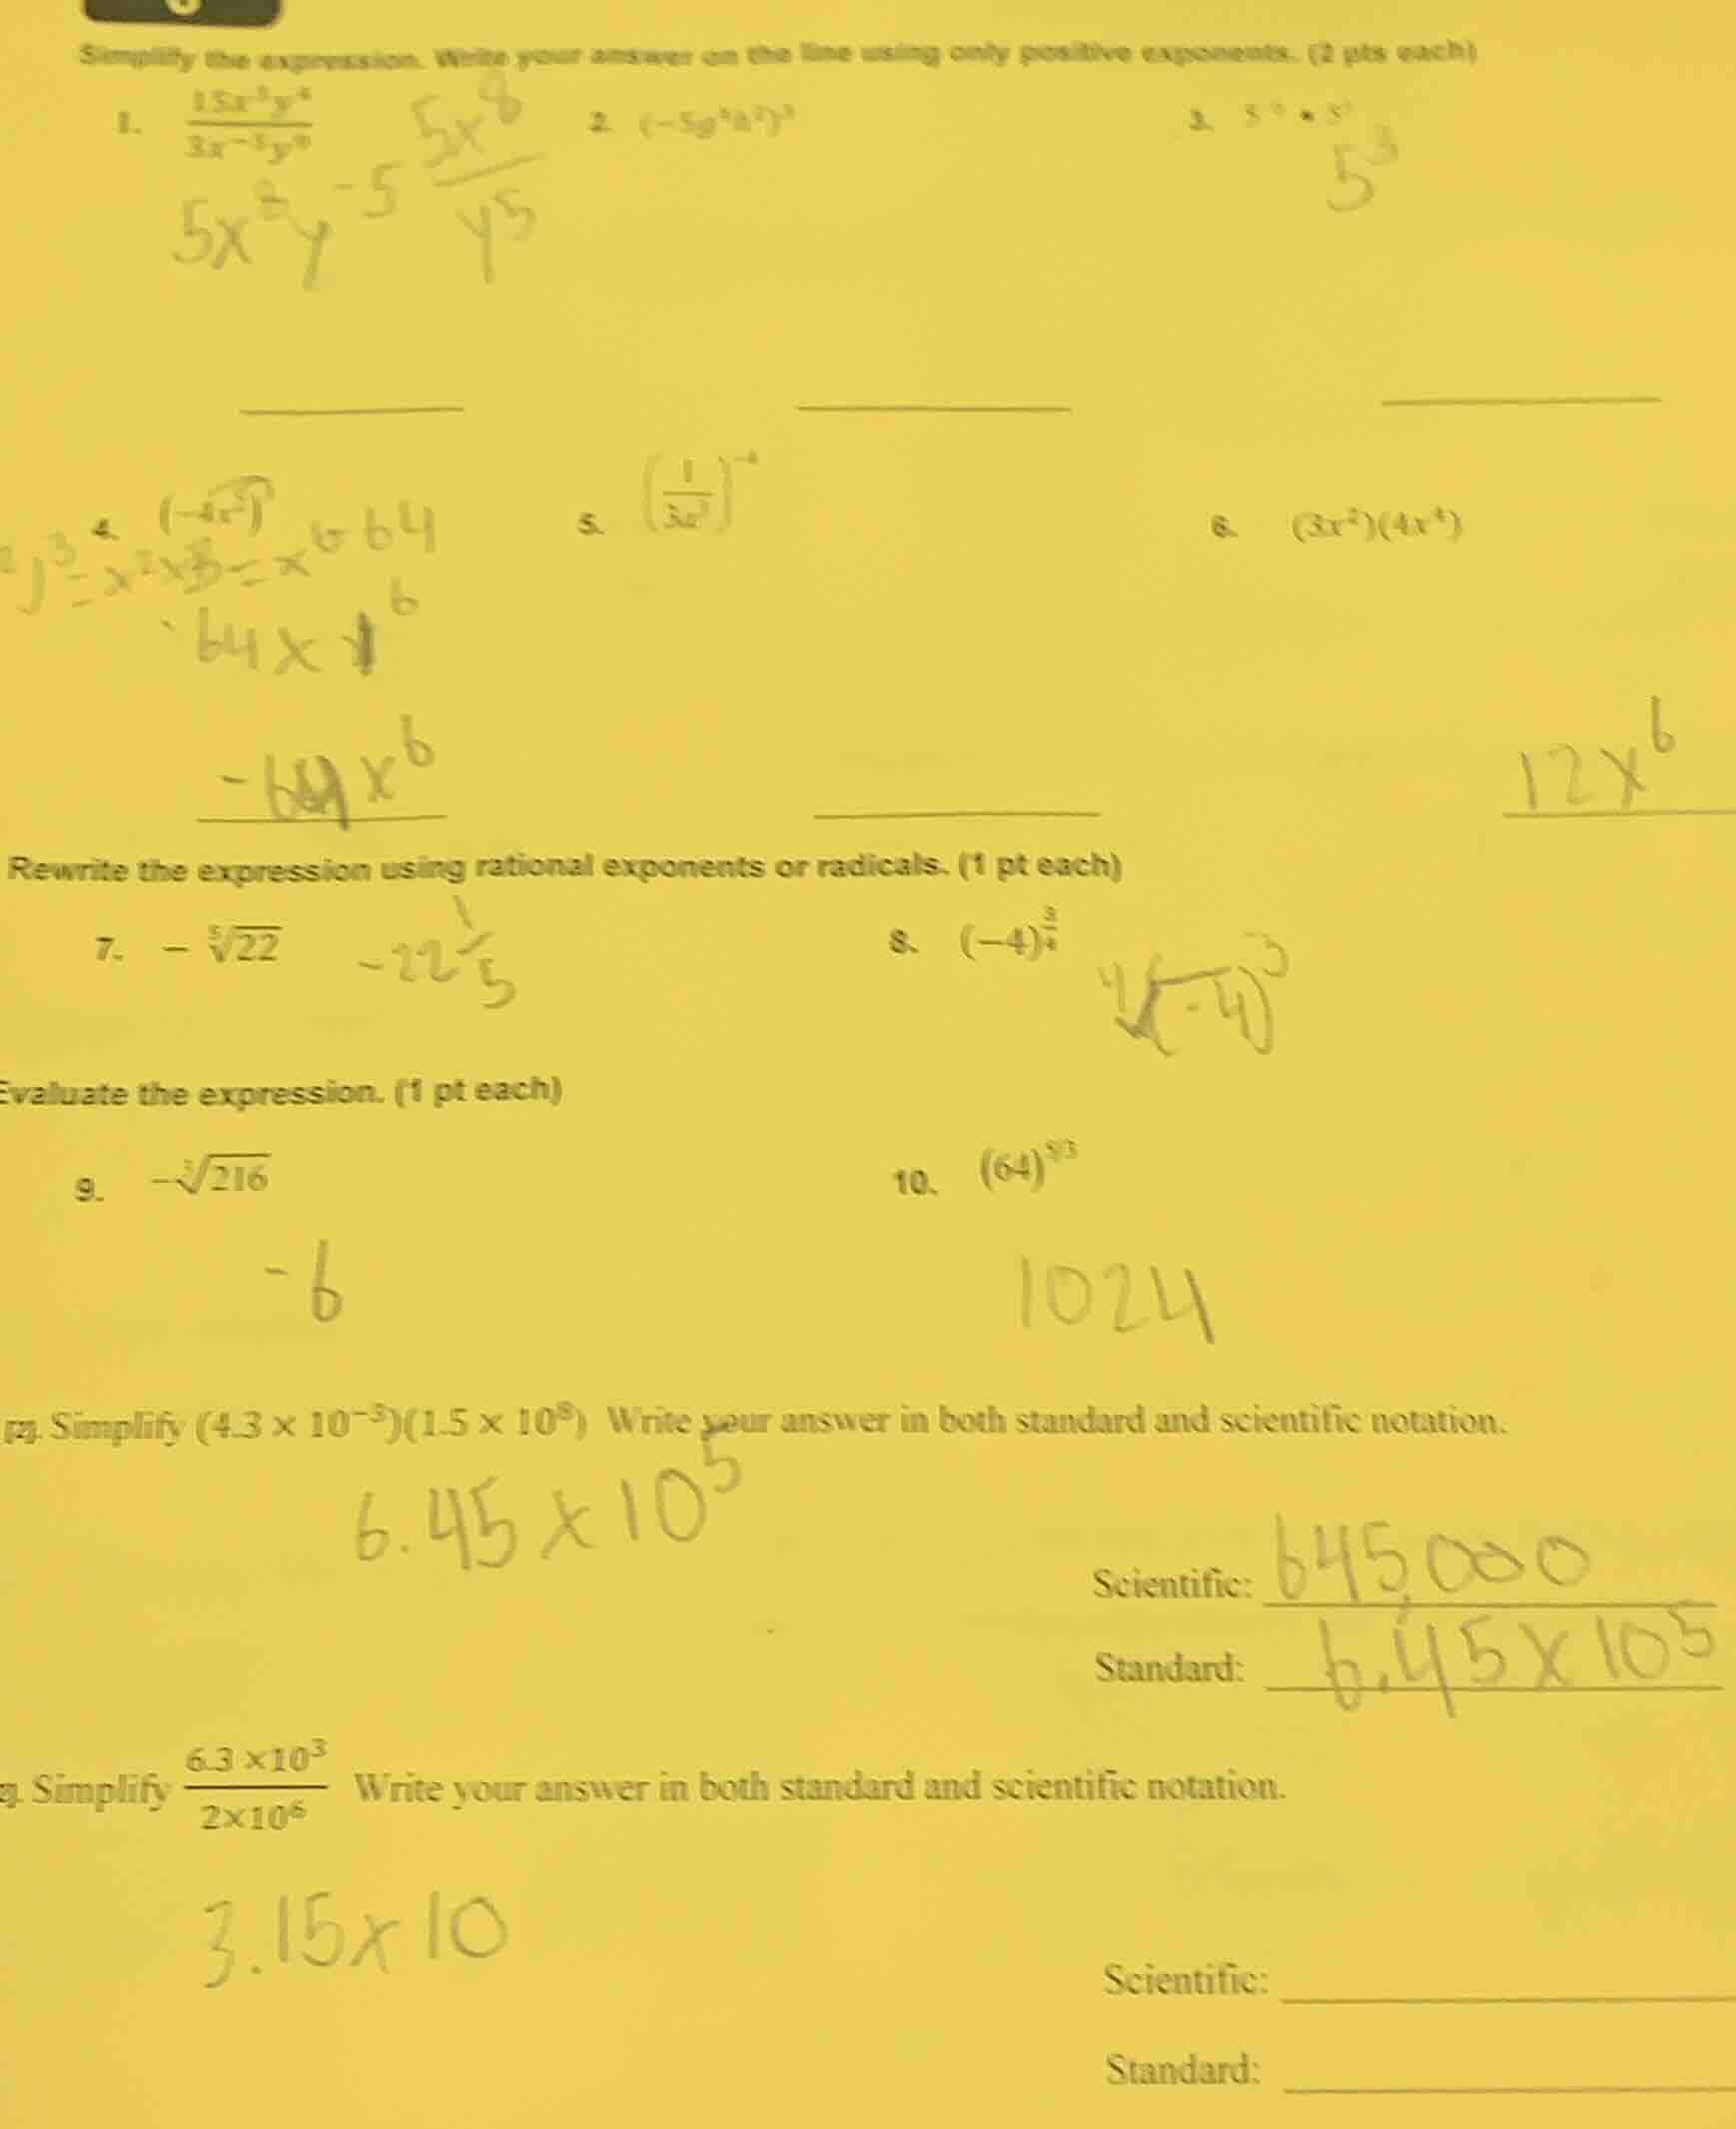 Simplify the expression. Write your answer on the line using only positive exponents. (2 pts each)
1.
5x^8 / y^5
5x^8 y^-5
2.
3.
5^3
4.
= x^2x3 = x^6 -64
-64x^6
-64x^6
5.
6. (3x²)(4x⁴)
12x^6
Rewrite the expression using rational exponents or radicals. (1 pt each)
7. − ⁵√22 -22^1/5
8. (−4)^3/4 ⁴√(-4)^3
Evaluate the expression. (1 pt each)
9. −³√216
-6
10. (64)^5/3
1024
Simplify (4.3 × 10⁻³)(1.5 × 10⁸) Write your answer in both standard and scientific notation.
6.45 x 10^5
Scientific: 645,000
Standard: 6.45 x 10^5
Simplify 6.3 ×10³ / 2×10⁶ Write your answer in both standard and scientific notation.
3.15 x 10
Scientific:
Standard: